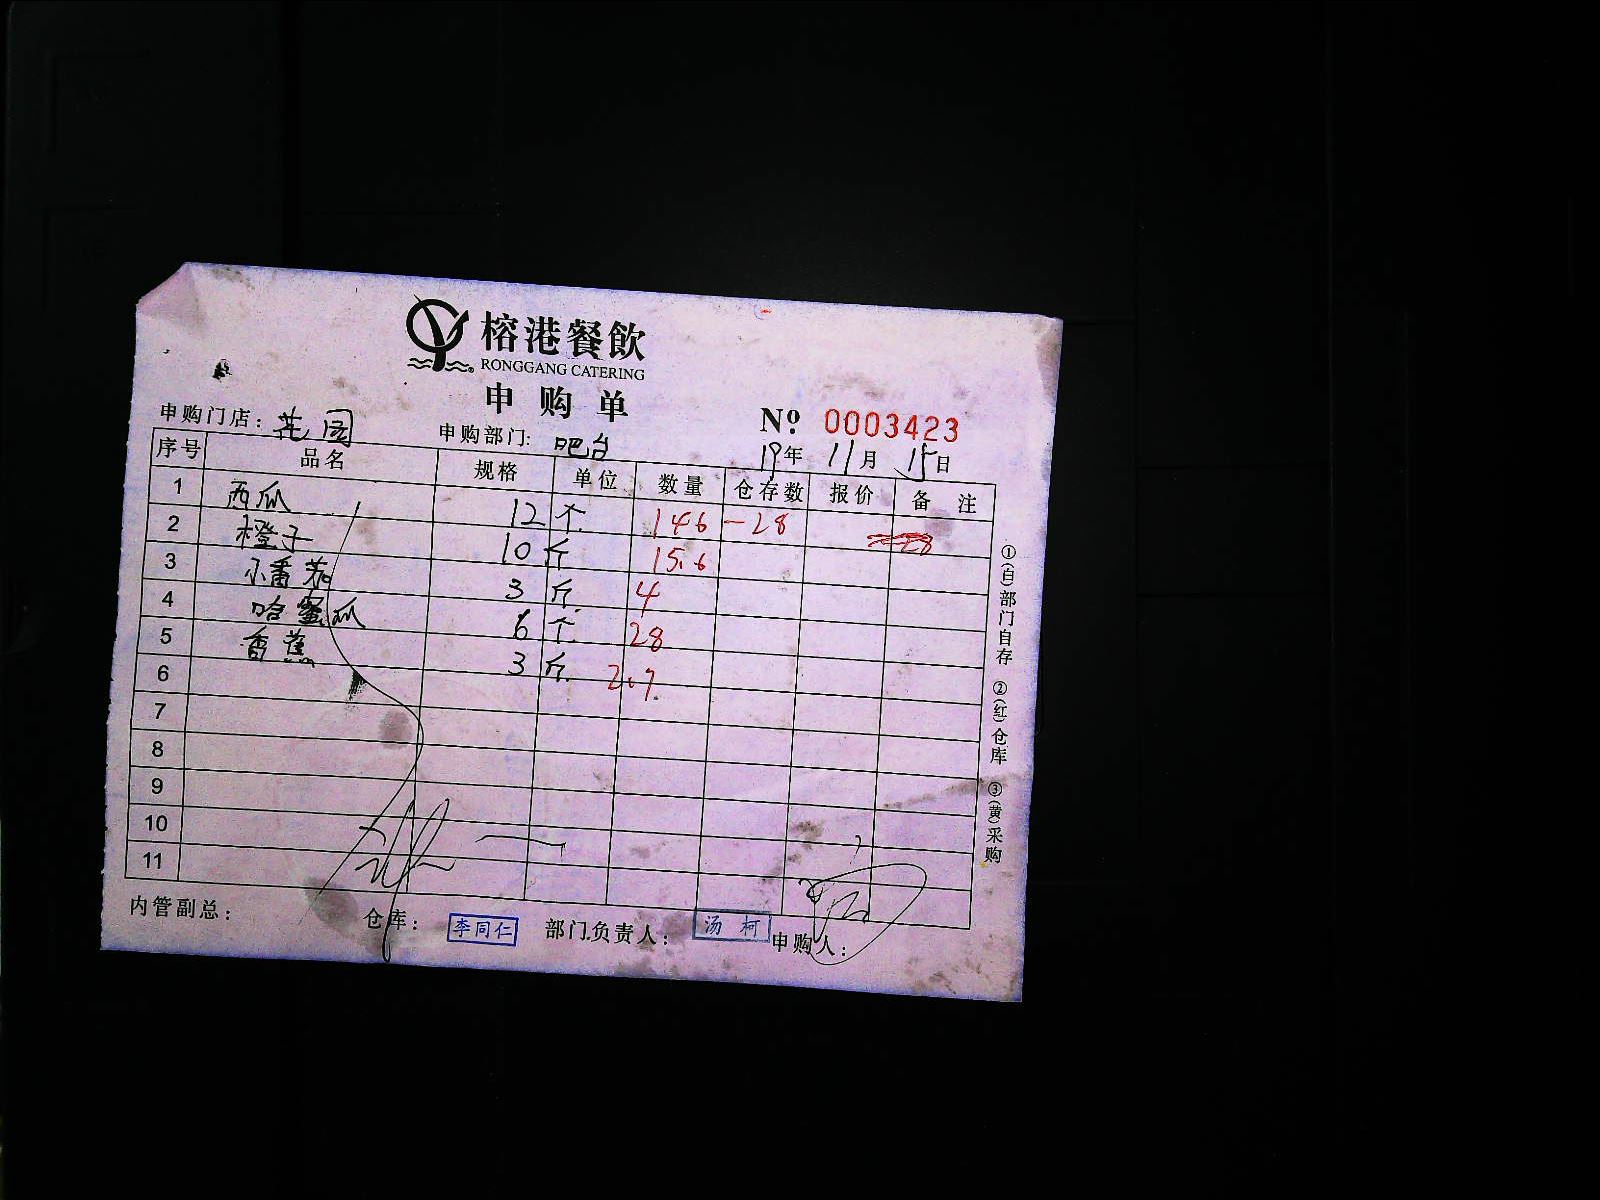 榕港餐飲
RONGGANG CATERING
申购单
№ 0003423
申购门店：花园 申购部门：吧台 19年 11月 15日
序号 品名 规格 单位 数量 仓存数 报价 备注
1 西瓜 12 个 146 -28
2 橙子 10 斤 15.6 28
3 小番茄 3 斤 4
4 哈蜜瓜 6 个 28
5 香蕉 3 斤 2.7
6
7
8
9
10
11
内管副总： 仓库： 李同仁 部门负责人： 汤柯 申购人：
①(白)部门自存 ②(红)仓库 ③(黄)采购